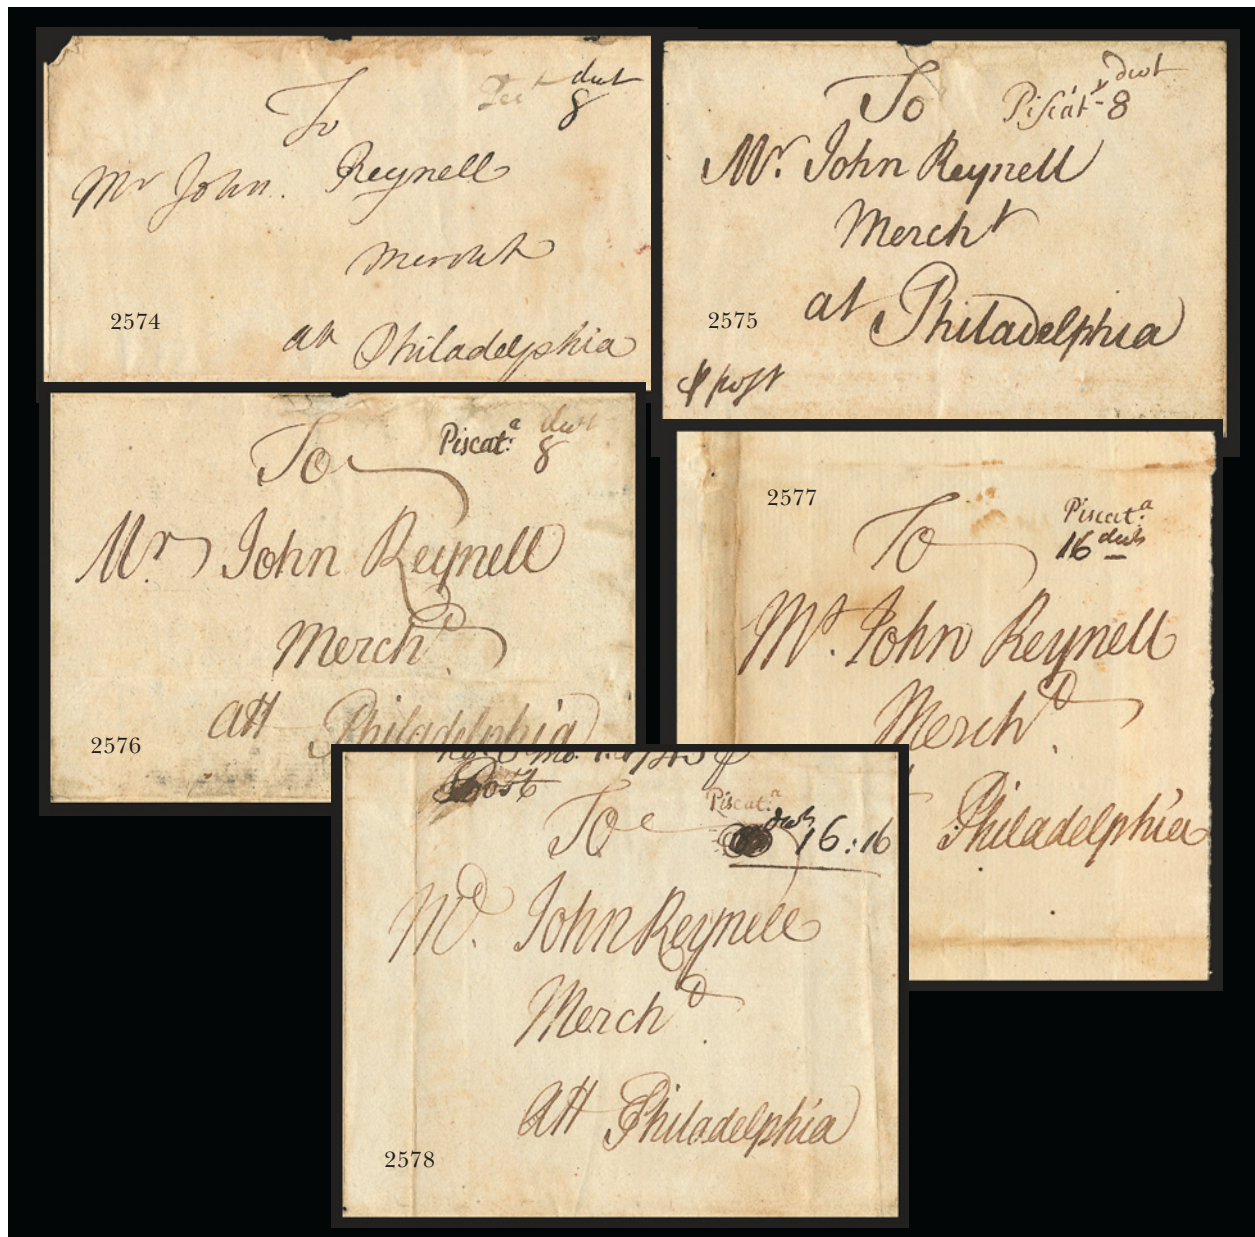 dwt
8
To
Mr John Reynell
Mercht
att Philadelphia
2574
dwt
Piscat.ᵃ 8
To
Mr. John Reynell
Mercht
at Philadelphia
2575
⅌ post
Piscat.ᵃ dwt
8
To
Mr. John Reynell
Mercht.
att Philadelphia
2576
2577
Piscat.ᵃ
16 dwt
To
Mr. John Reynell
Mercht.
Philadelphia
Post
Piscat.ᵃ
dwt 16:16
To
Mr. John Reynell
Mercht.
att Philadelphia
2578